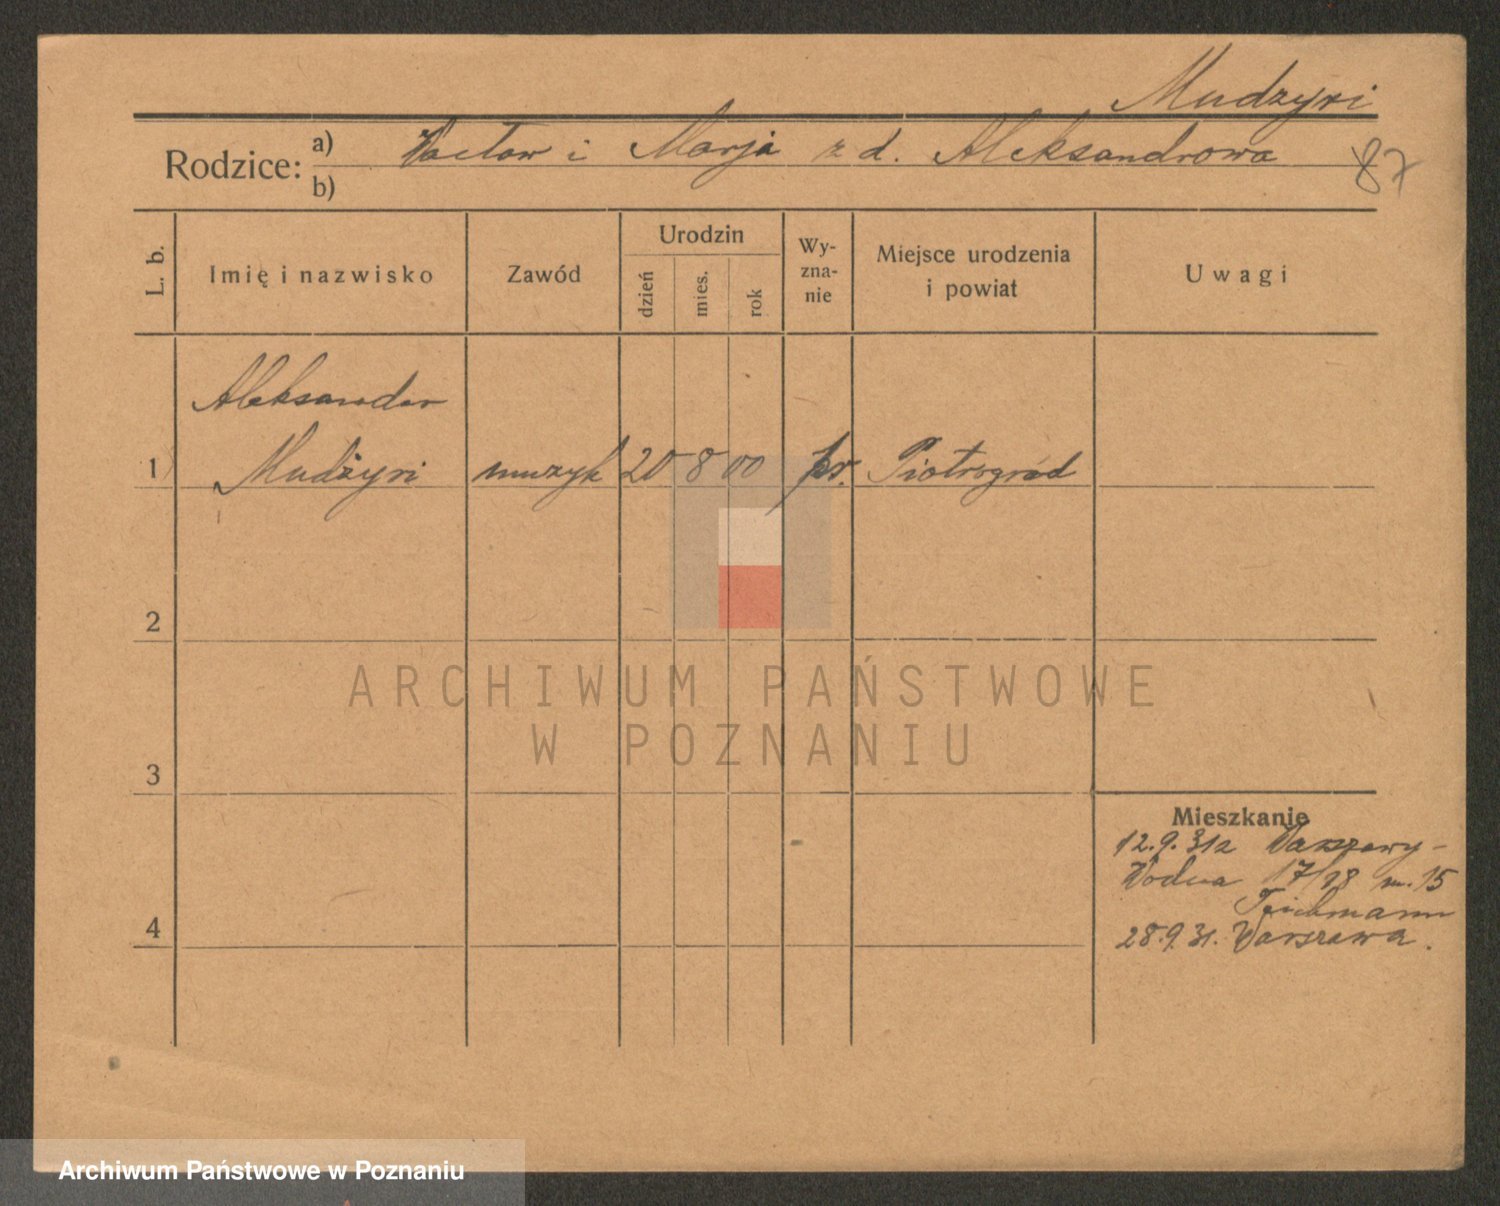 Mudzyri
Rodzice: a) Wacław i Marja z d. Aleksandrowa
b)
87
L. b.
Imię i nazwisko
Zawód
Urodzin
dzień
mies.
rok
Wy-
zna-
nie
Miejsce urodzenia
i powiat
Uwagi
Aleksander
1) Mudżyri muzyk 20 8 00 pr. Piotrogród
2
3
4
Mieszkanie
12.9.31 z Warszawy -
Wodna 17/18 m. 15
Teichmann
28.9.31. Warszawa.
ARCHIWUM PAŃSTWOWE
W POZNANIU
Archiwum Państwowe w Poznaniu